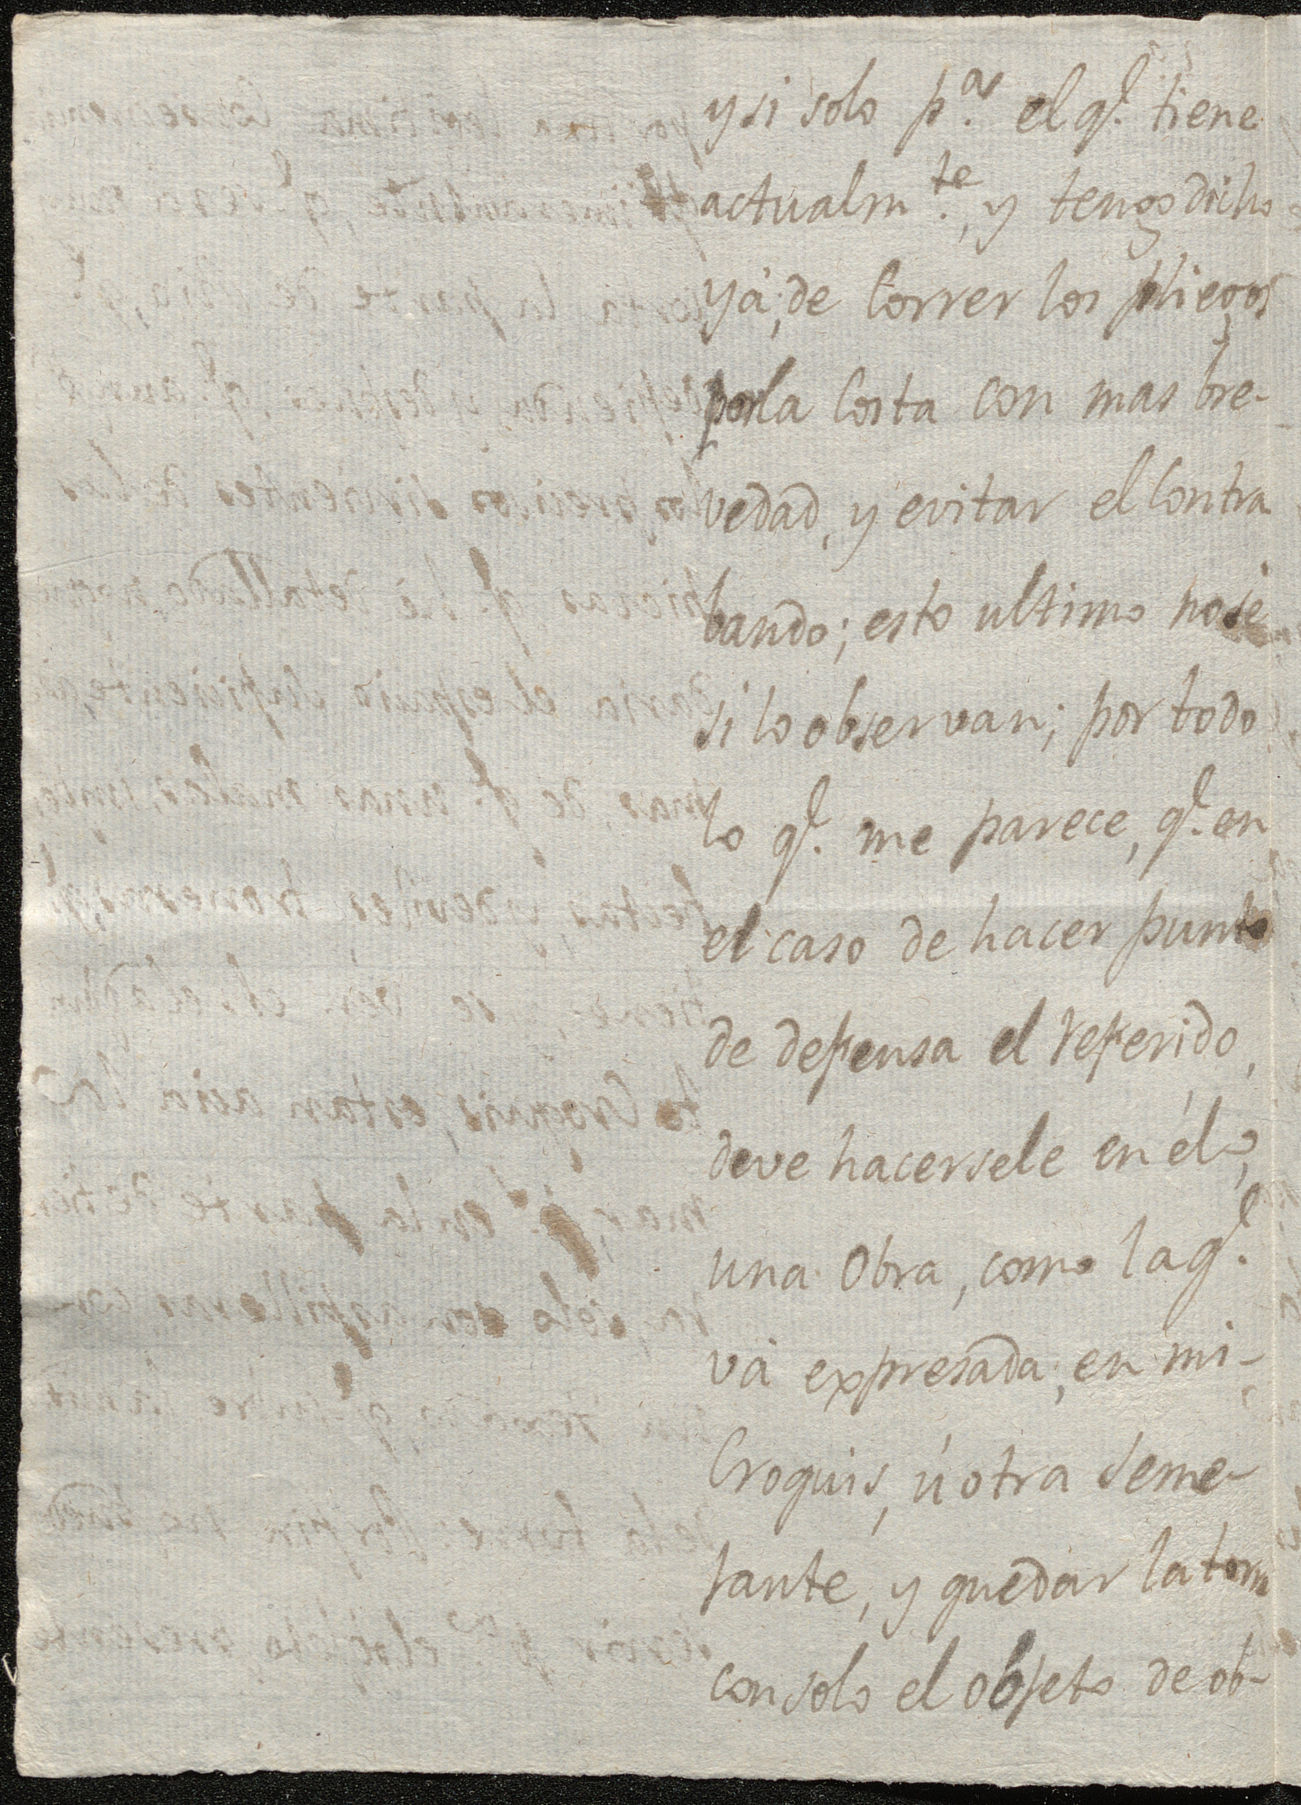 y si solo p.ª el q.l tiene
actualm.te, y tengo dicho
yá, de correr los pliegos
por la Costa con mas bre-
vedad, y evitar el Contra
bando; esto ultimo no sé
si lo observan; por todo
lo q.l me parece, q.l en
el caso de hacer punto
de defensa el referido,
deve hacersele en él,
una Obra, como la q.l
vá expresada, en mi-
Croquis, ú otra seme-
jante, y quedar la torre
con solo el objeto de ob-